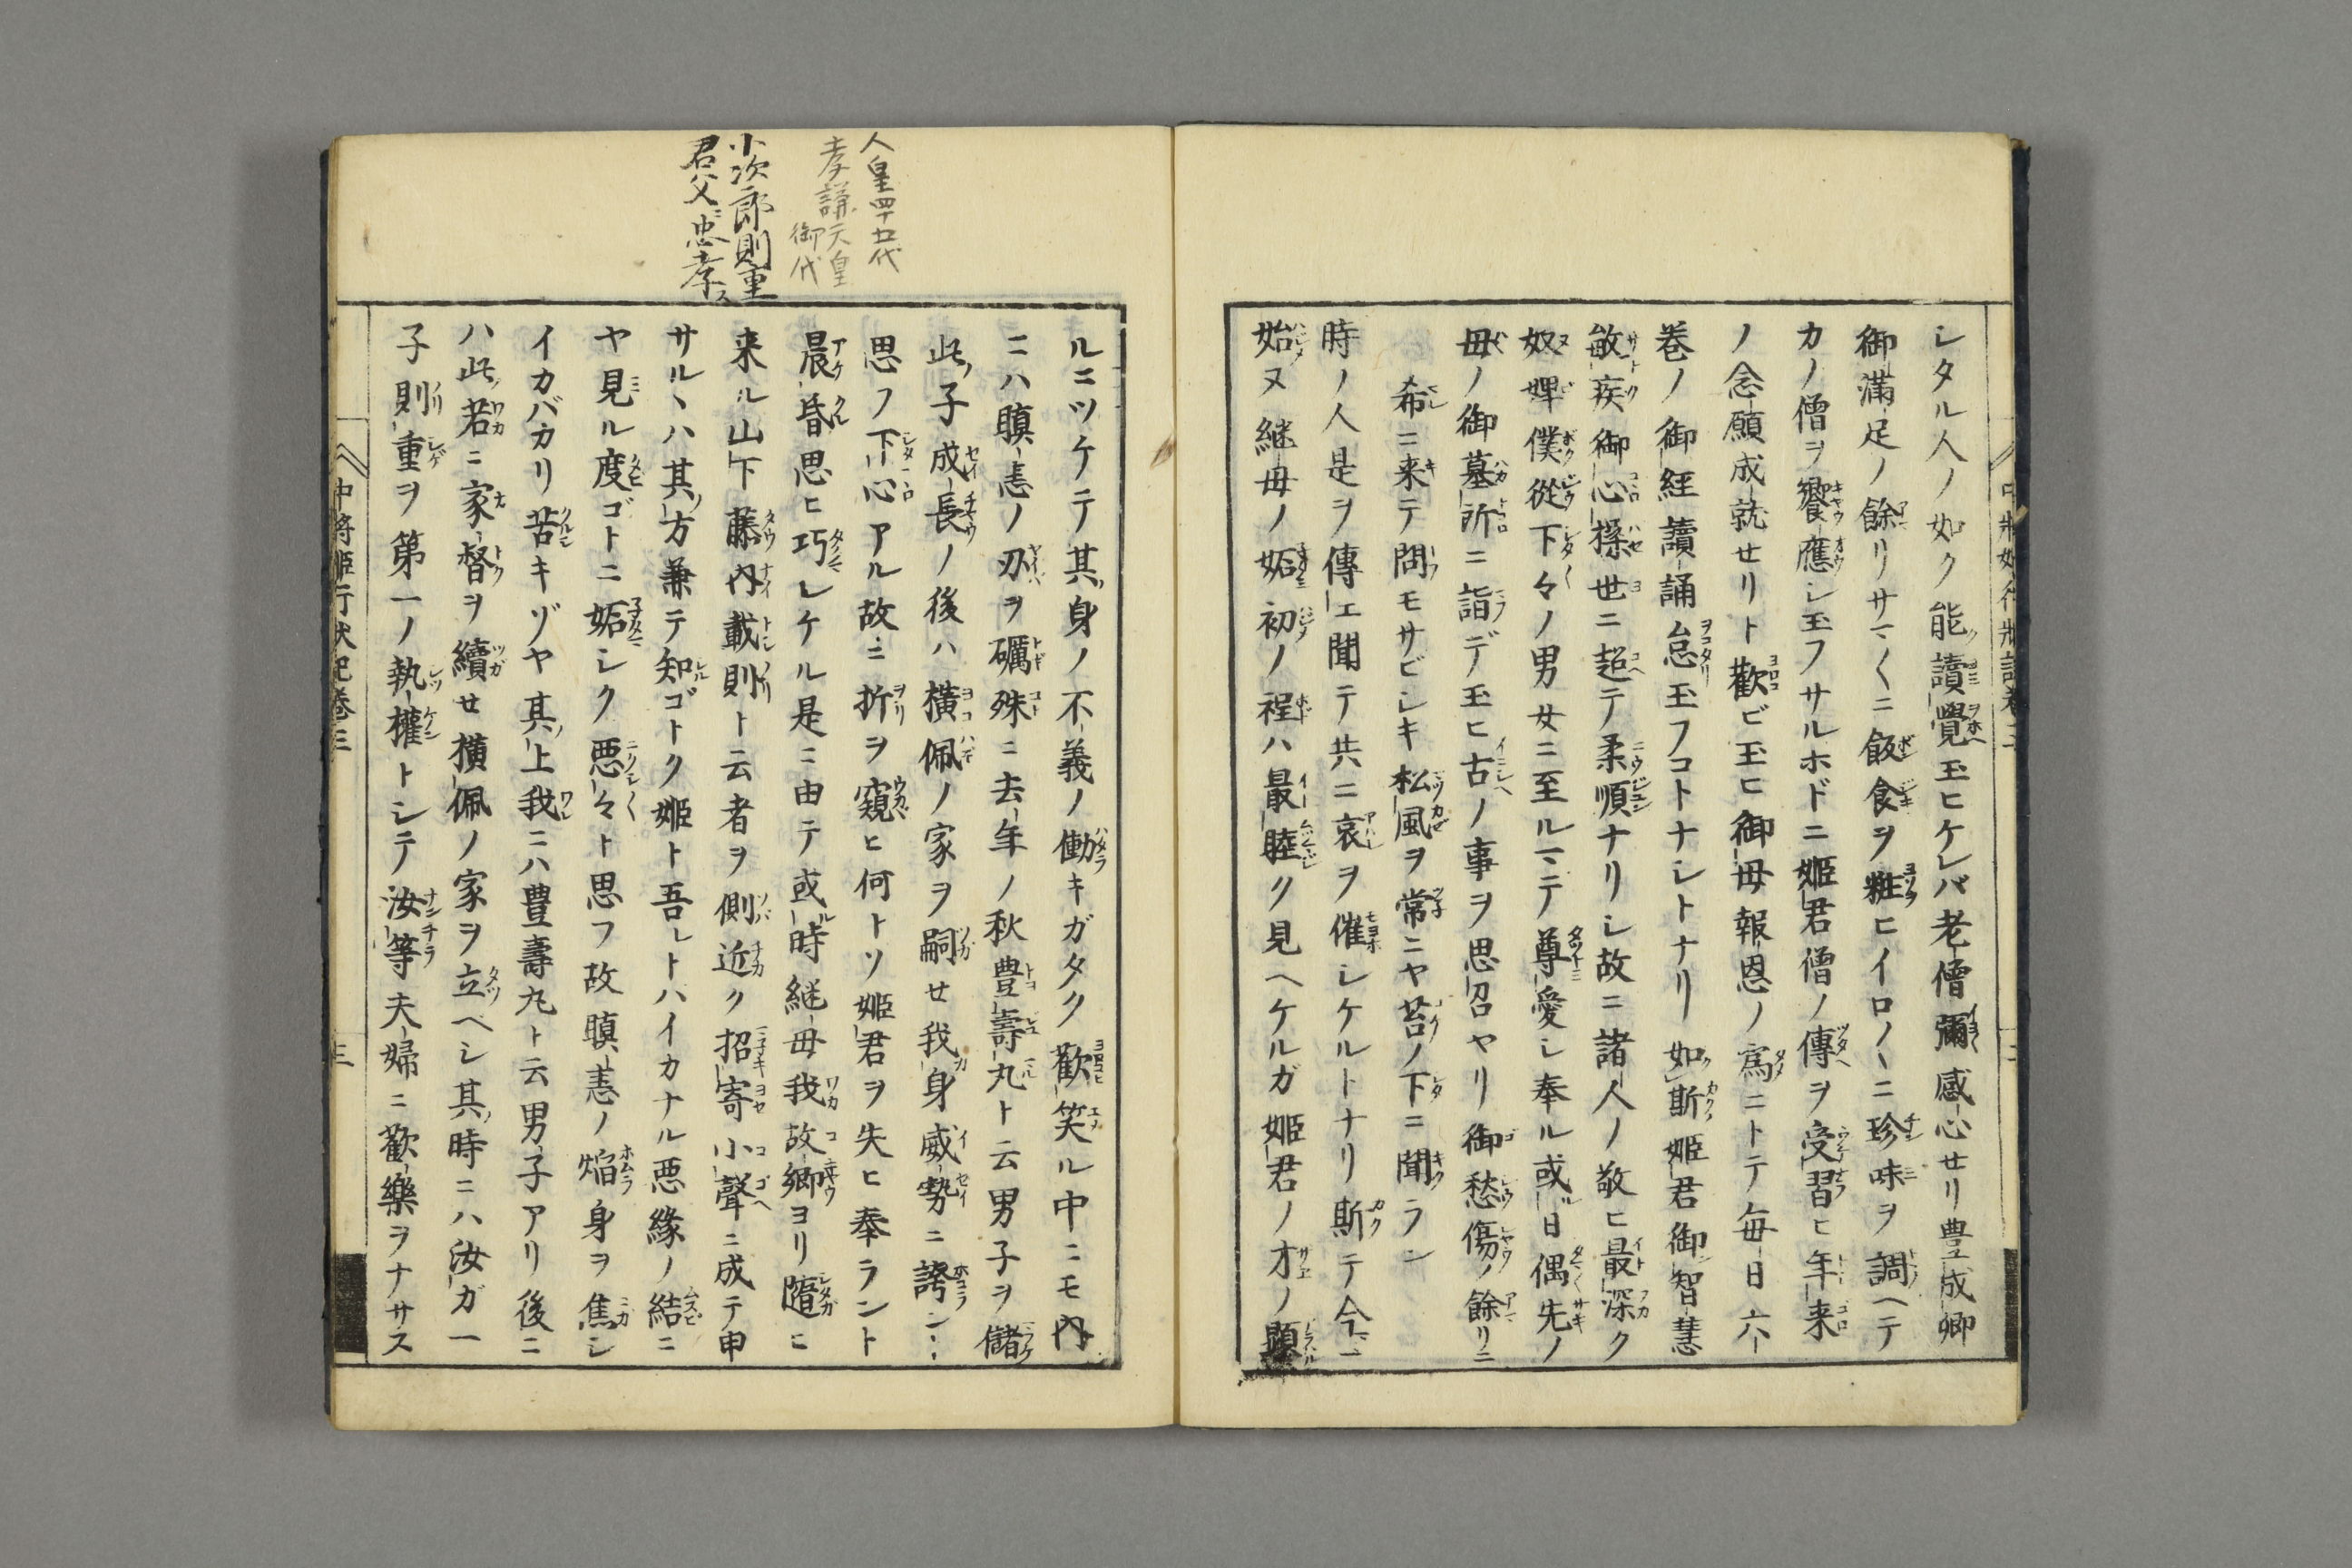 シタル人ノ如ク能讀覺玉ヒケレバ老僧彌感心セリ豊成卿
御滿足ノ餘リサマ〱ニ飯食ヲ粧ヒイロ〱ニ珍味ヲ調ヘテ
カノ僧ヲ饗應シ玉フサルホドニ姫君僧ノ傳ヲ受習ヒ年来
ノ念願成就セリト歡ビ玉ヒ御母報恩ノ爲ニトテ毎日六
巻ノ御經讀誦怠玉フコトナシトナリ如斯姫君御智慧
敏疾御心操世ニ超テ柔順ナリシ故ニ諸人ノ敬ヒ最深ク
奴婢僕從下々ノ男女ニ至ルマデ尊愛シ奉ル或日偶先ノ
母ノ御墓所ニ詣デ玉ヒ古ノ事ヲ思召ヤリ御愁傷ノ餘リニ
希ニ来テ問モサビシキ松風ヲ常ニヤ苔ノ下ニ聞ラン
時ノ人是ヲ傳エ聞テ共ニ哀ヲ催シケルトナリ斯テ今マ
始ヌ継母ノ妬初ノ程ハ最睦ク見ヘケルガ姫君ノ才ノ顯
人皇四十五代
孝謙天皇
御代
小次郎則重
君父ニ忠孝ス
ルニツケテ其身ノ不義ノ働キガタク歡笑ル中ニモ内
ニハ瞋恚ノ刃ヲ礪殊ニ去年ノ秋豊壽丸ト云男子ヲ儲
此子成長ノ後ハ横佩ノ家ヲ嗣セ我身威勢ニ誇ン
思フ下心アル故ニ折ヲ窺ヒ何トソ姫君ヲ失ヒ奉ラント
晨昏思ヒ巧レケル是ニ由テ或時継母我故郷ヨリ隨ヒ
来ル山下藤内載則ト云者ヲ側近ク招寄小聲ニ成テ申
サルヽハ其方兼テ知ゴトク姫ト吾レトハイカナル悪縁ノ結ニ
ヤ見ル度ゴトニ妬シク悪々ト思フ故瞋恚ノ焔身ヲ焦シ
イカバカリ苦キゾヤ其上我ニハ豊壽丸ト云男子アリ後ニ
ハ此若ニ家督ヲ續セ横佩ノ家ヲ立ベシ其時ニハ汝ガ一
子則重ヲ第一ノ執權トシテ汝等夫婦ニ歡樂ヲナサス
中將姫行状記巻三